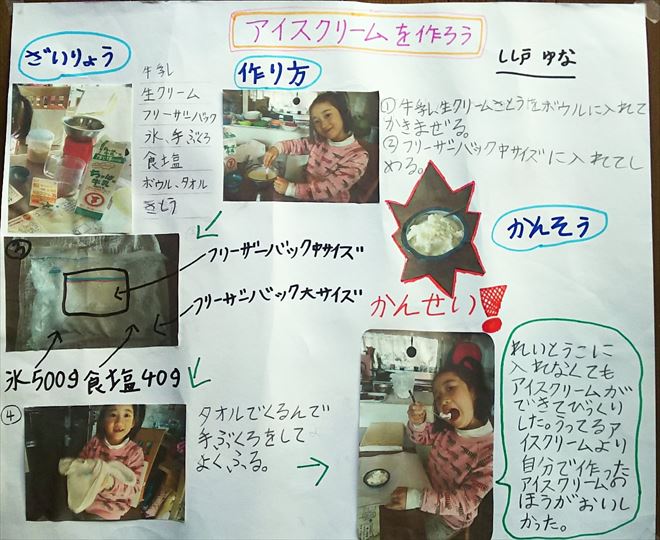 アイスクリームを作ろう
しし戸 ゆな
ざいりょう
牛乳
生クリーム
フリーザーバック
氷、手ぶくろ
食塩
ボウル、タオル
さとう
作り方
①牛乳、生クリームさとうをボウルに入れて
かきまぜる。
②フリーザーバック中サイズに入れてし
める。
③
フリーザーバック中サイズ
フリーザーバック大サイズ
氷500g 食塩40g
④
タオルでくるんで
手ぶくろをして
よくふる。
かんせい!
かんそう
れいとうこに
入れなくても
アイスクリームが
できてびっくり
した。うってるア
イスクリームより
自分で作った
アイスクリームの
ほうがおいし
かった。